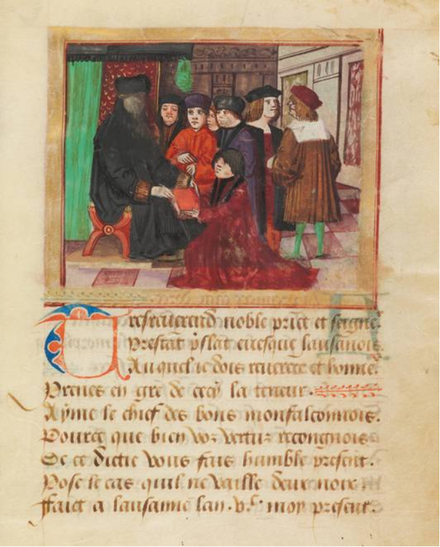 Tresreuerend noble prince et seigne
Prestat pslat euesque lausanois
Auquel ie dois reuerece et honne
Prenes en gre de cecy la teneur
Ayme le chief des bons monfalconnois
Pource que bien voz vertuz recongnois
De ce dictie vous fais humble present
Pose le cas quil ne vaille deux noix
Faict a lausanne lan v^c moy present